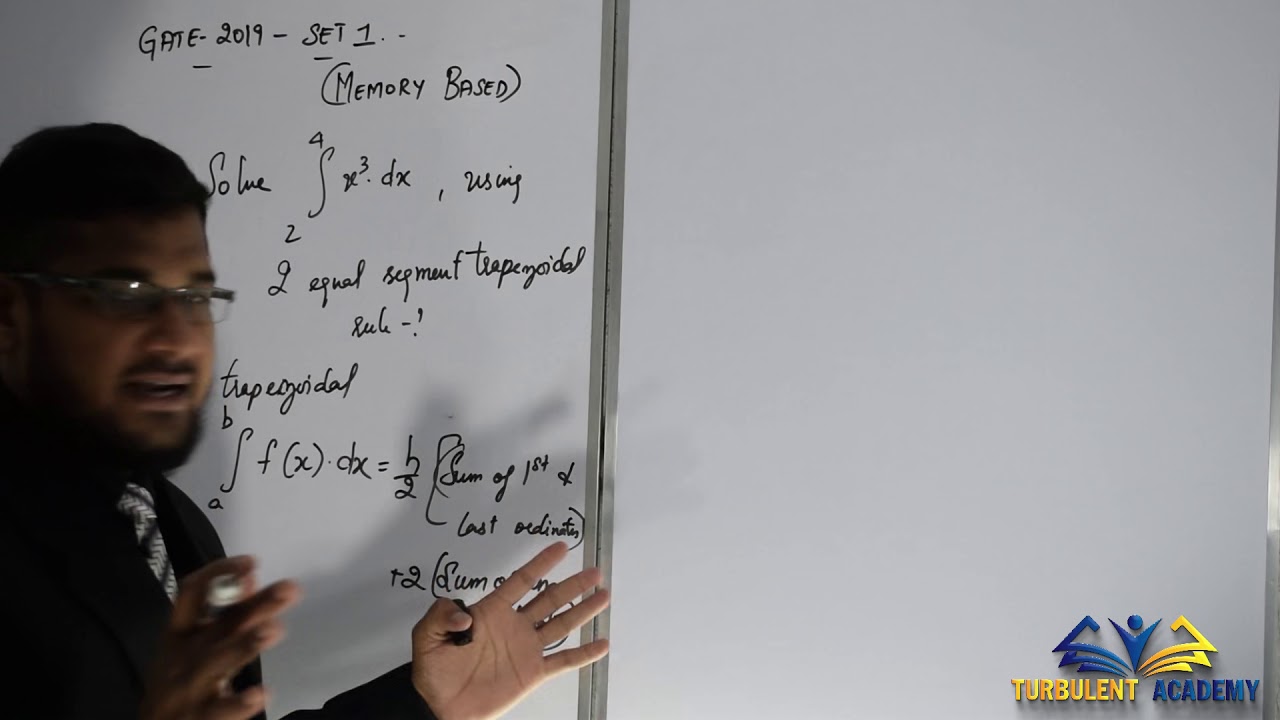 GATE- 2019 - SET 1...
(MEMORY BASED)
Solve ∫₂⁴ x³. dx , using
2 equal segment trapezoidal
rule -?
trapezoidal
∫ₐᵇ f(x).dx = h/2 [(Sum of 1st &
last ordinates)
+2 (Sum
TURBULENT ACADEMY